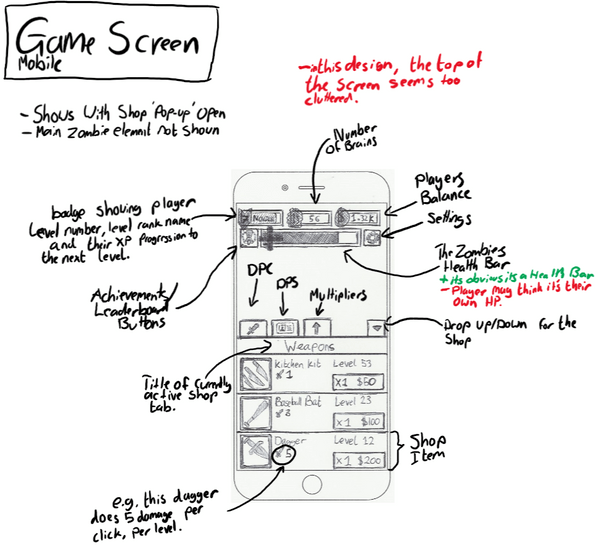 Game Screen
Mobile
- Shows With Shop 'Pop-up' Open
- Main Zombie elemnt not shown
- in this design, the top of
the screen seems too
cluttered.
Number
Of Brains
Players
Balance
Settings
badge showing player
Level number, level rank name
and their XP progression to
the next level.
56
1.32K
The Zombies
Health Bar
+ its obvious its a Health Bar
- Player may think it's their
own HP.
Achievement/
Leaderboard
Buttons
DPC
DPS
Multipliers
Drop Up/Down for the
Shop
Title of currently
active shop
tab.
Weapons
Kitchen Kit
Level 53
1
x1 $50
Baseball Bat
Level 23
3
x1 $100
Dagger
Level 12
5
x1 $200
Shop
Item
e.g. this dagger
does 5 damage per
click, per level.